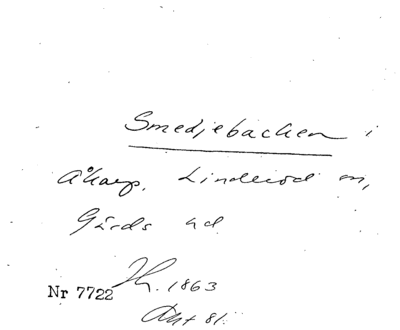 Smedjebacken i
Åkarp, Linderöd sn,
Gärds hd.
Nr 7722 Th. 1863
Akt 81.